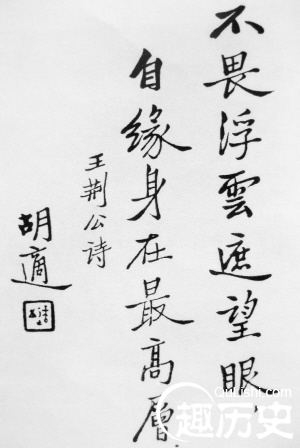 不畏浮雲遮望眼
自缘身在最高層
王荆公诗
胡適
Qulishi.com
趣历史